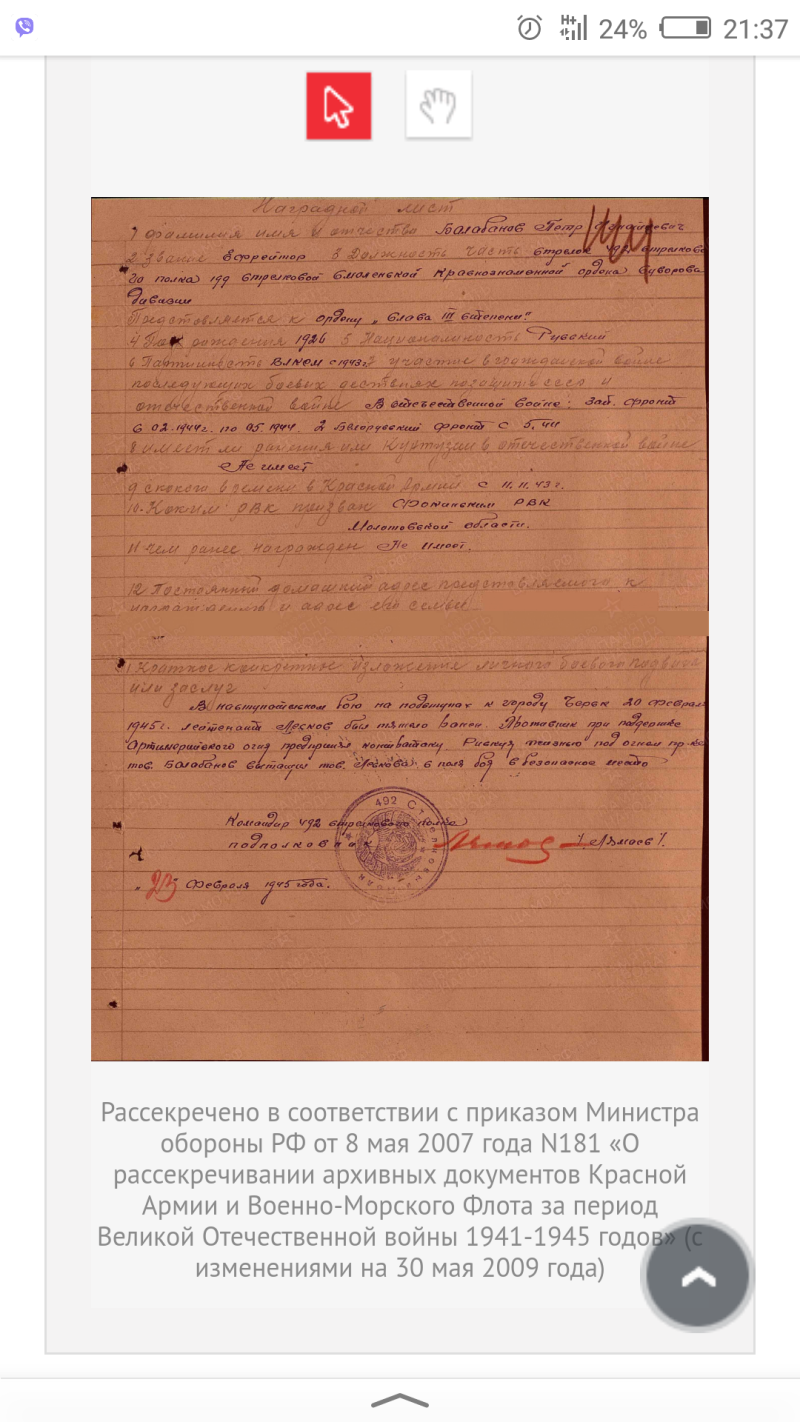 24% 21:37
Наградной лист
1 Фамилия имя и отчество Балабанов Петр
2 Звание Ефрейтор 3 Должность часть стрелок 492 стрелково
го полка 199 стрелковой Смоленской Краснознаменной ордена Суворова
дивизии
Представляется к ордену „Слава III степени"
4 Год рождения 1926 5 Национальность Русский
6 Партийность ВЛКСМ с 1943г 7 участие в гражданской войне
последующих боевых действиях по защите СССР и
отечественной войне В отечественной войне: Зап. фронт
с 02.1944г. по 05.1944 2 Белорусский фронт с 5.44
8 имеет ли ранения или контузии в отечественной войне
Не имеет
9 с какого времени в Красной Армии с 11.11.43г.
10. Каким РВК призван Фокинским РВК
Молотовской области.
11 Чем ранее награжден Не имеет.
12 Постоянный домашний адрес представляемого к
награждению и адрес его семьи
1 Краткое конкретное изложение личного боевого подвига
или заслуг
В наступательном бою на подступах к городу Черск 20 февраля
1945г. лейтенант Лесков был тяжело ранен. Противник при поддержке
артиллерийского огня предпринял контратаку. Рискуя жизнью под огнем пр-ка
тов. Балабанов вытащил тов. Лескова с поля боя в безопасное место
Командир 492 стрелкового полка
подполковник
492
февраля 1945 года.
Рассекречено в соответствии с приказом Министра
обороны РФ от 8 мая 2007 года N181 «О
рассекречивании архивных документов Красной
Армии и Военно-Морского Флота за период
Великой Отечественной войны 1941-1945 годов» (с
изменениями на 30 мая 2009 года)